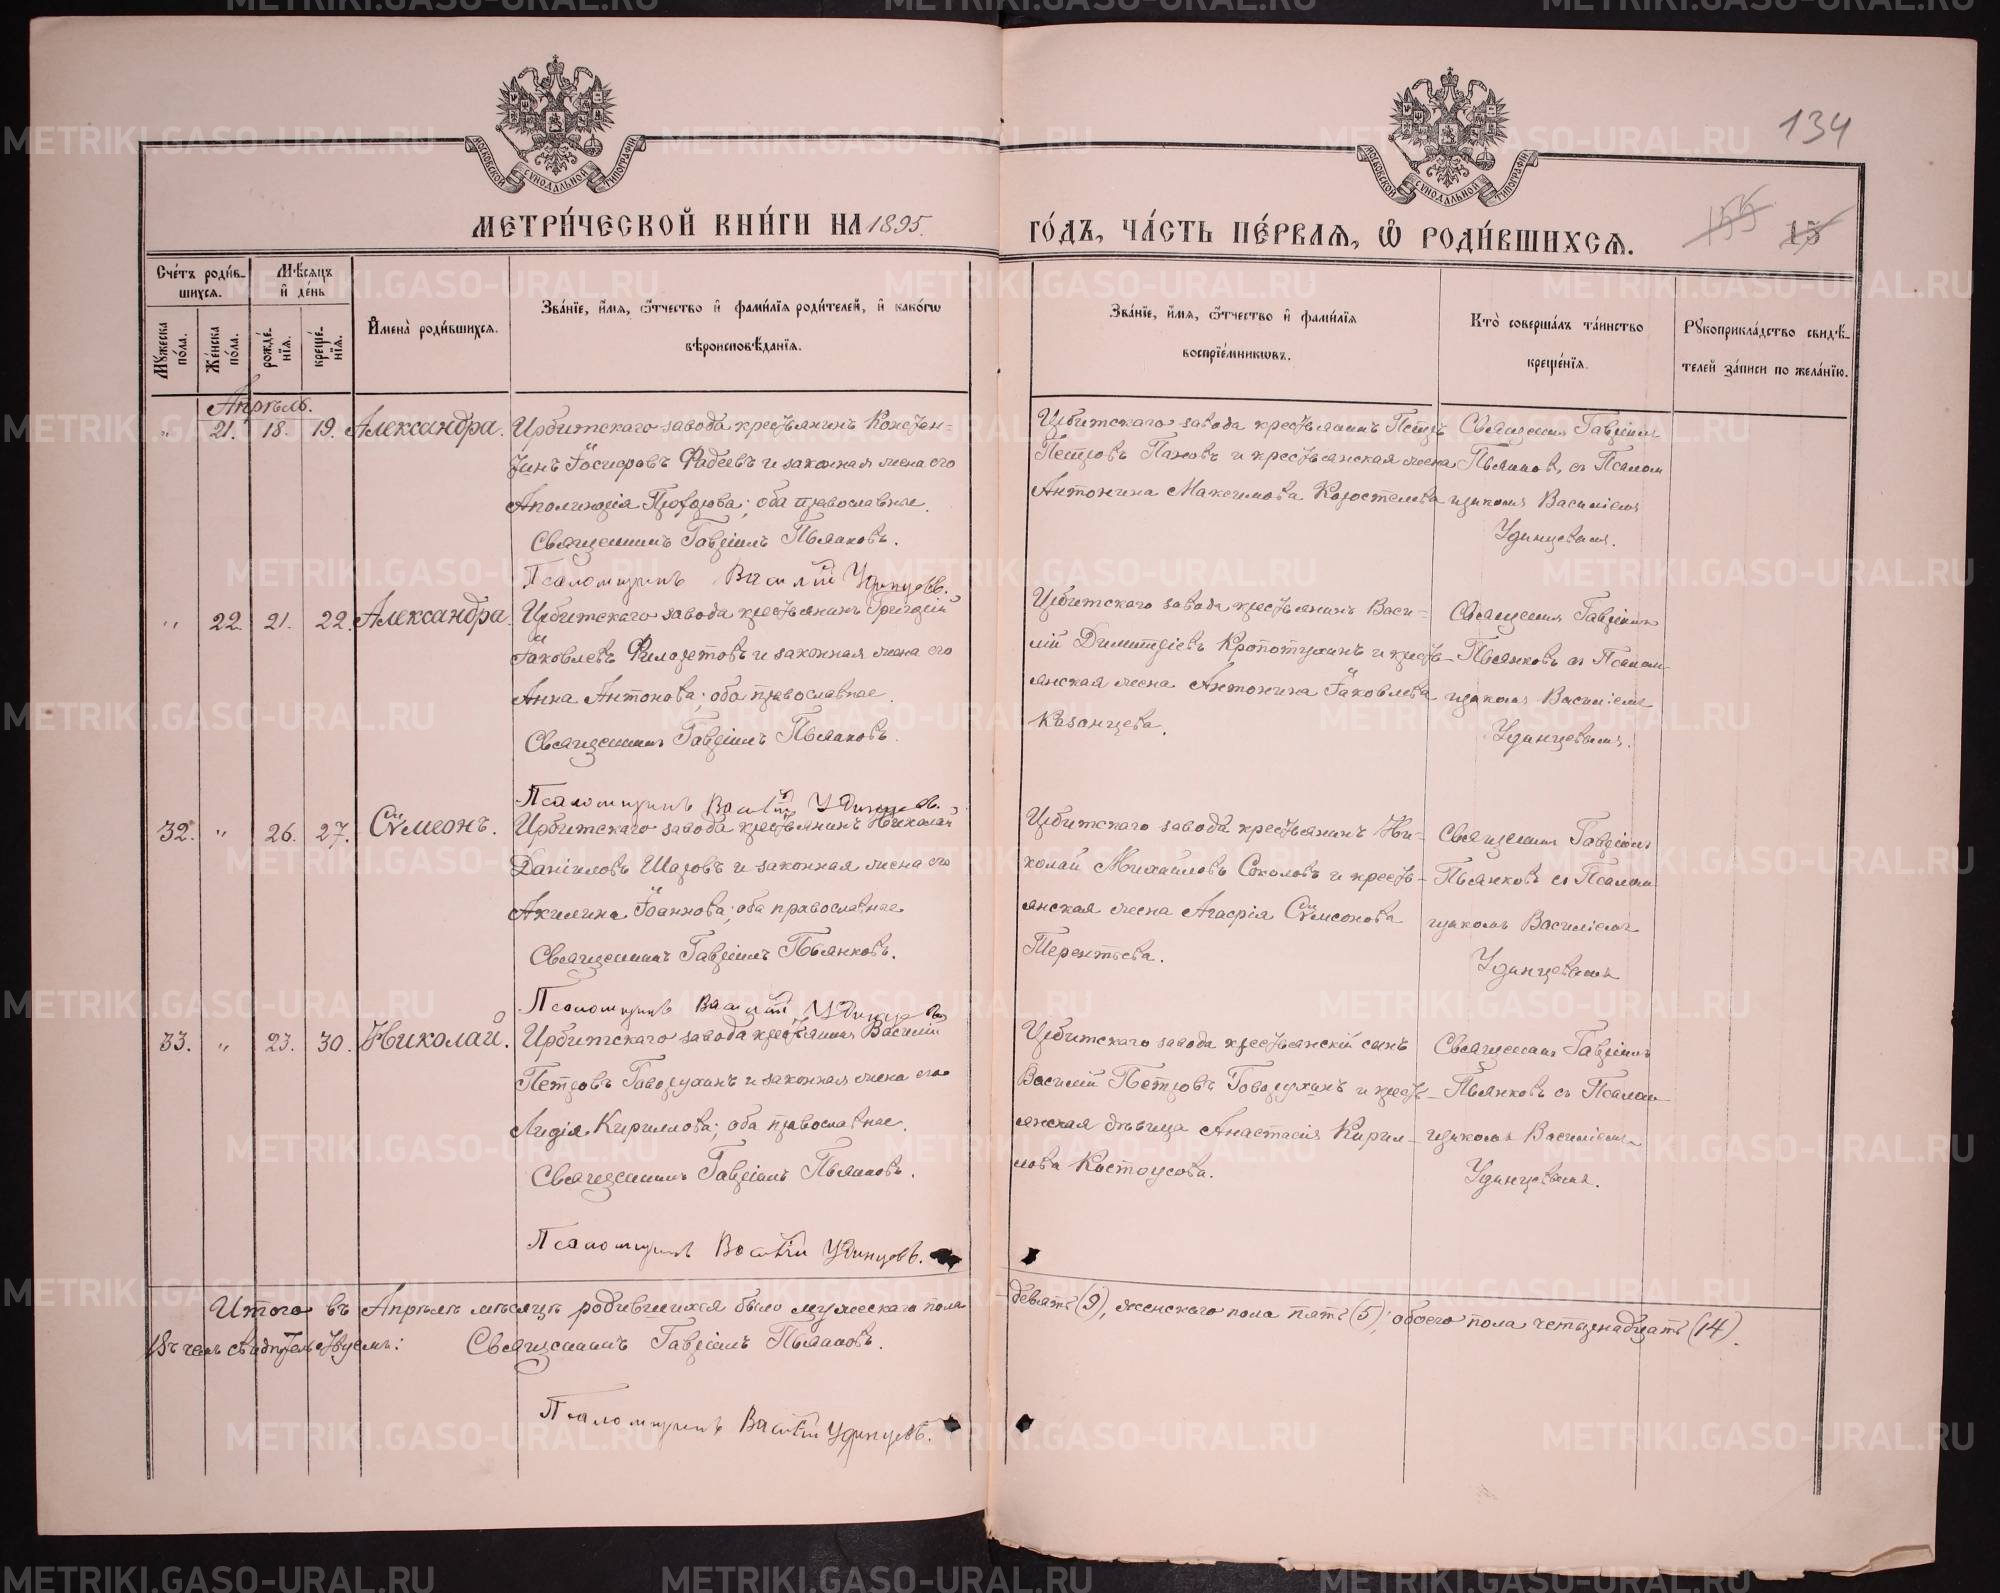 134
МОСКОВСКОЙ СѴНОДАЛЬНОЙ ТИПОГРАФІИ
МОСКОВСКОЙ СѴНОДАЛЬНОЙ ТИПОГРАФІИ
МЕТРИ́ЧЕСКОЙ КНИ́ГИ НА 1895.
ГО́ДЪ, ЧА́СТЬ ПЕ́РВАЯ, Ѡ РОДИ́ВШИХСЯ.
155 15
Сче́тъ роди́в-
шихся.
Мѣ́сяцъ
и де́нь
Мꙋ́жеска по́ла.
Же́нска по́ла.
рожде́-нїя.
креще́-нїя.
Имена̀ роди́вшихся.
Зва́нїе, и́мя, ѻ҆́тчество и фами́лїя роди́телей, и како́гѡ
вѣроисповѣ́данїя.
Зва́нїе, и́мя, ѻ҆́тчество и фами́лїя
воспрїе́мникѡвъ.
Кто̀ соверша́лъ та́инство
креще́нїя.
Рꙋкоприкла́дство свидѣ́-
телей за́писи по жела́нїю.
Апрѣль.
" 21. 18. 19. Александра. Ирбитскаго завода крестьянинъ Констан-
тинъ Іосифовъ Фадеевъ и законная жена его
Православнае: оба православнае.
Священникъ Гавріилъ Пьянковъ.
Псаломщикъ Василій Удинцевъ.
Ирбитскаго завода крестьянинъ Петръ
Петровъ Пановъ и крестьянская жена
Антонина Максимова Коростелева
Священникъ Гавріилъ
Пьянковъ, съ Псалом-
щикомъ Василіемъ
Удинцевымъ.
" 22. 21. 22. Александра. Ирбитскаго завода крестьянинъ Григорій
Іаковлевъ Филаретовъ и законная жена его
Анна Антонова; оба православнае.
Священникъ Гавріилъ Пьянковъ.
Псаломщикъ Василій Удинцевъ.
Ирбитскаго завода крестьянинъ Васи-
лій Димитріевъ Кропотухинъ и кресть-
янская жена Антонина Іаковлева
Казанцева.
Священникъ Гавріилъ
Пьянковъ съ Псалом-
щикомъ Василіемъ
Удинцевымъ.
32. " 26. 27. Сѷмеонъ. Ирбитскаго завода крестьянинъ Николай
Даніиловъ Шаровъ и законная жена его
Акилина Іоаннова; оба православнае
Священникъ Гавріилъ Пьянковъ.
Псаломщикъ Василій Удинцевъ
Ирбитскаго завода крестьянинъ Ни-
колай Михаиловъ Соколовъ и кресть-
янская жена Агафія Сѷмеонова
Терентьева.
Священникъ Гавріилъ
Пьянковъ съ Псалом-
щикомъ Василіемъ
Удинцевымъ
33. " 23. 30. Николай. Ирбитскаго завода крестьянинъ Василій
Петровъ Говорухинъ и законная жена его
Лидія Кириллова; оба православнае.
Священникъ Гавріилъ Пьянковъ.
Псаломщикъ Василій Удинцевъ.
Ирбитскаго завода крестьянскій сынъ
Василій Петровъ Говорухинъ и кресть-
янская дѣвица Анастасія Кирил-
лова Костоусова.
Священникъ Гавріилъ
Пьянковъ съ Псалом-
щикомъ Василіемъ
Удинцевымъ.
Итого въ Апрѣлѣ мѣсяцѣ родившихся было мужескаго пола девять (9), женскаго пола пять (5); обоего пола четырнадцать (14).
въ чемъ свидѣтельствуемъ: Священникъ Гавріилъ Пьянковъ.
Псаломщикъ Василій Удинцевъ.
METRIKI.GASO-URAL.RU